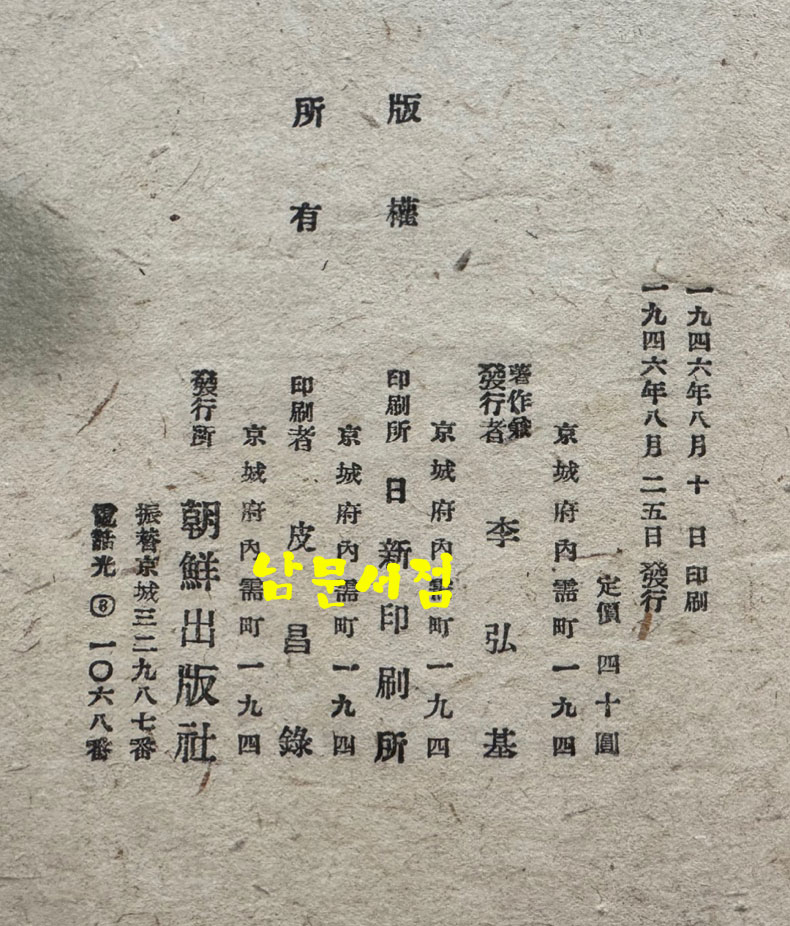 版權
所有
一九四六年八月十日印刷
一九四六年八月二五日發行
定價 四十圓
京城府內需町一九四
著作兼
發行者 李弘基
京城府內需町一九四
印刷所 日新印刷所
京城府內需町一九四
印刷者 皮昌錄
京城府內需町一九四
發行所 朝鮮出版社
振替京城三二九八七番
電話光③一〇六八番
남문서점